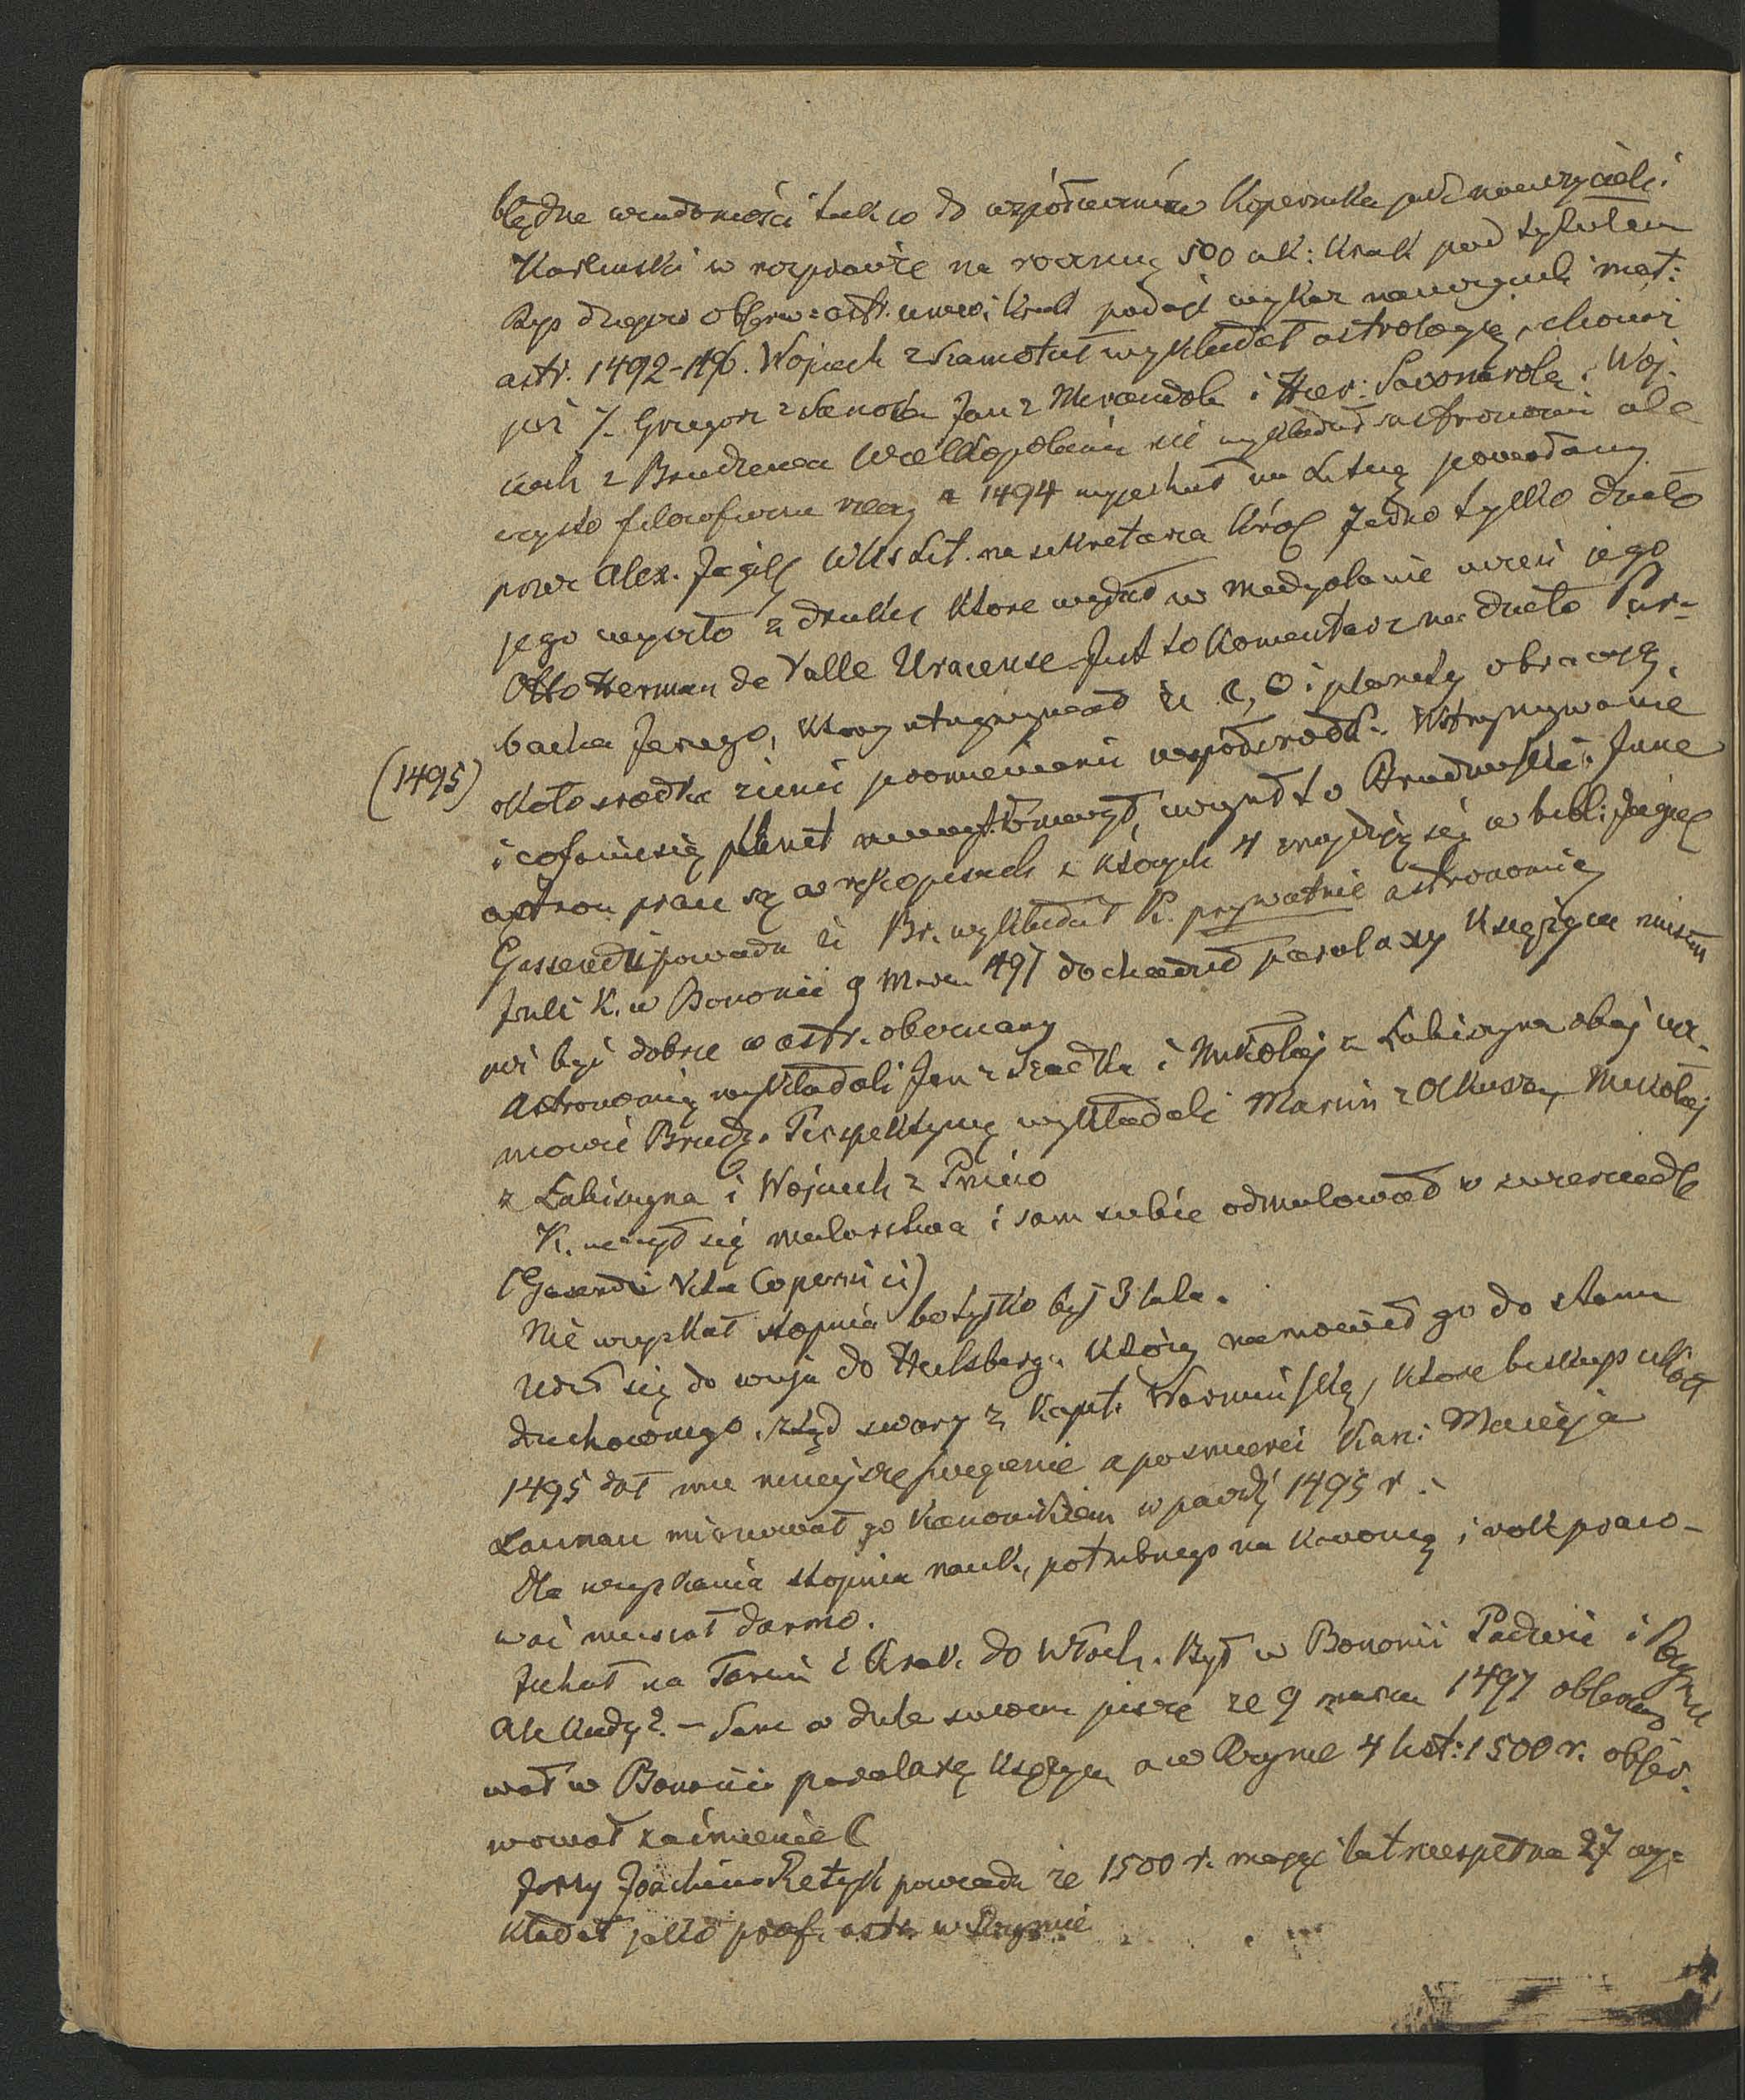 błędne wiadomości tak co do współuczniów Kopernika jak nauczycieli.
Karliński w rozprawie na rocznicę 500 ak: Krak pod tytułem
Rys dziejów obserw: astr. uniw: Krak podaje wykaz nauczycieli mat:
astr. 1492-. Wojciech z Szamotuł wykładał astrologię, chociaż
już Grzegorz z Sanoka Jan z Mirandoli i Hier: Savonarola. Woj-
ciech z Brudzewa Wielkopolanin nie wykładał astronomii ale
czysto filozoficzne rzeczy a 1494 wyjechał na Litwę powołany
przez Alex. Jagiell WKs Lit. na sekretarza Król Jedno tylko dzieło
jego wyszło z druku które wydał w Medyolanie uczeń jego
Otto Herman de Valle Uracense Jest to komentarz na dzieło Pur-
bacha Jerzego, który utrzymywał że ☾, ☉ i planety obracają
(1495) około środka ziemi promieniami współśrodk. Wstrzymywanie
i cofanie się planet tłomaczył, uczynił to Brudzewski. Inne
astron. prace są w rękopisach z których 4 znajdują się w bibl: Jagiel
Gassendi powiada że Br. wykładał K. prywatnie astronomię
Jeśli K. w Bononii 9 Marca 497 dochodził paralaxy Księżyca musiał
już być dobrze w astr. obeznany
Astronomię wykładali Jan z Szadka i Mikołaj z Łabiszyna obaj ucz-
niowie Brudz. Perspektywę wykładali Marcin z Olkusza, Mikołaj
z Łabiszyna i Wojciech z Pniew
K. uczył się malarstwa i sam siebie odmalował w zwierciedle
(Gasendi Vita Copernici)
Nie uzyskał stopnia bo tylko był 3 lata.
Udał się do wuja do Heilsberga który namówił go do stanu
duchownego, stąd swary z Kapit. Warmińską, które biskup
1495 dał mu a po śmierci Kan: Macieja
Launau mianował go kanonikiem w paźdź 1495 r.
Dla uzyskania stopnia nauk, potrzebnego na kanonię i rok praco-
wać musiał darmo.
Jechał na Toruń i Krak. do Włoch. Był w Bononii Padwie i Rzymie
Ale kiedy? — Sam w dziele swoem pisze że 9 marca 1497 obserwo
wał w Bononii paralaxę Księżyca a w Rzymie 4 list: 1500 r. obser-
wował zaćmienie ☾
Jerzy Joachim Retyk powiada że 1500 r. mając lat niespełna 27 wy-
kładał jako prof. astr w Rzymie